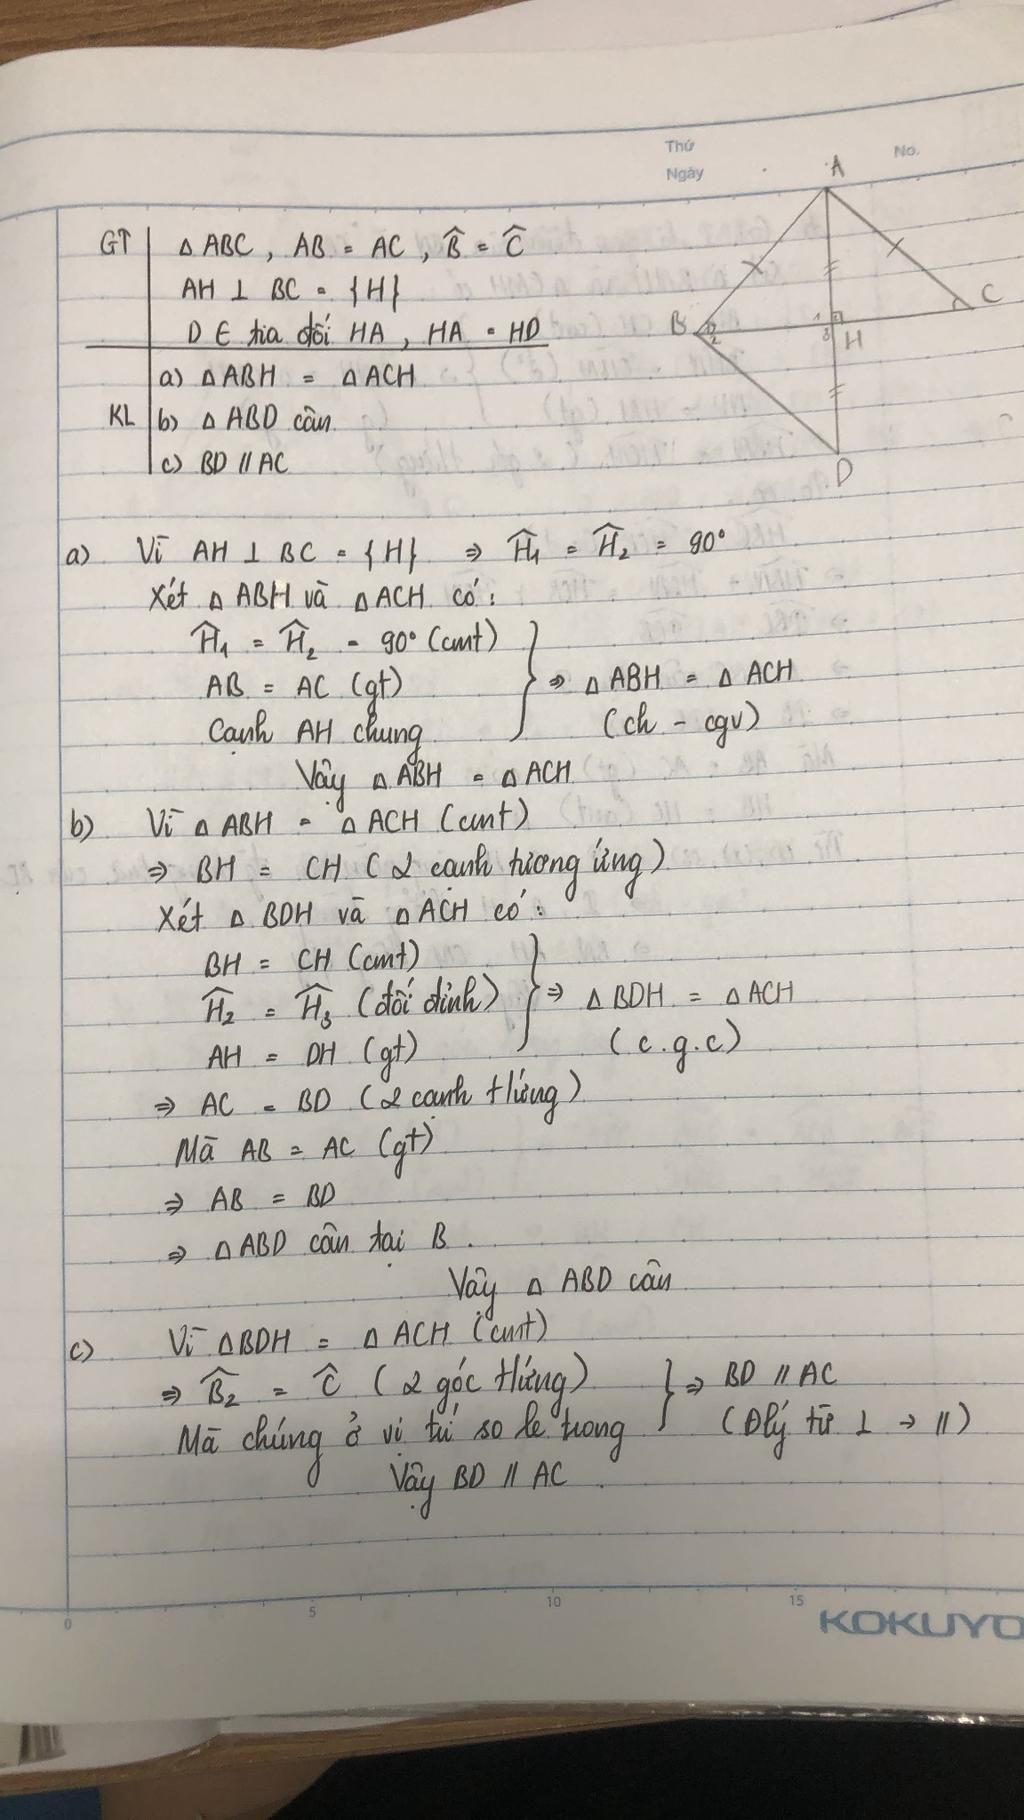 Thứ
Ngày
No.
GT
△ ABC , AB = AC , B̂ = Ĉ
AH ⊥ BC = {H}
D ∈ tia đối HA , HA = HD
KL
a) △ ABH = △ ACH
b) △ ABD cân
c) BD // AC
A
B
C
H
D
1
2
1
2
3
a) Vì AH ⊥ BC = {H} ⇒ Ĥ₁ = Ĥ₂ = 90°
Xét △ ABH và △ ACH có :
Ĥ₁ = Ĥ₂ = 90° (cmt)
AB = AC (gt)
Cạnh AH chung
} ⇒ △ ABH = △ ACH
(ch - cgv)
Vậy △ ABH = △ ACH
b) Vì △ ABH = △ ACH (cmt)
⇒ BH = CH ( 2 cạnh tương ứng )
Xét △ BDH và △ ACH có :
BH = CH (cmt)
Ĥ₂ = Ĥ₃ (đối đỉnh)
AH = DH (gt)
} ⇒ △ BDH = △ ACH
( c.g.c )
⇒ AC = BD ( 2 cạnh tứng )
Mà AB = AC (gt)
⇒ AB = BD
⇒ △ ABD cân tại B .
Vậy △ ABD cân
c) Vì △ BDH = △ ACH (cmt)
⇒ B̂₂ = Ĉ ( 2 góc tứng )
Mà chúng ở vị trí so le trong
} ⇒ BD // AC
( Đlý từ ⊥ → // )
Vậy BD // AC .
0 5 10 15
KOKUYO